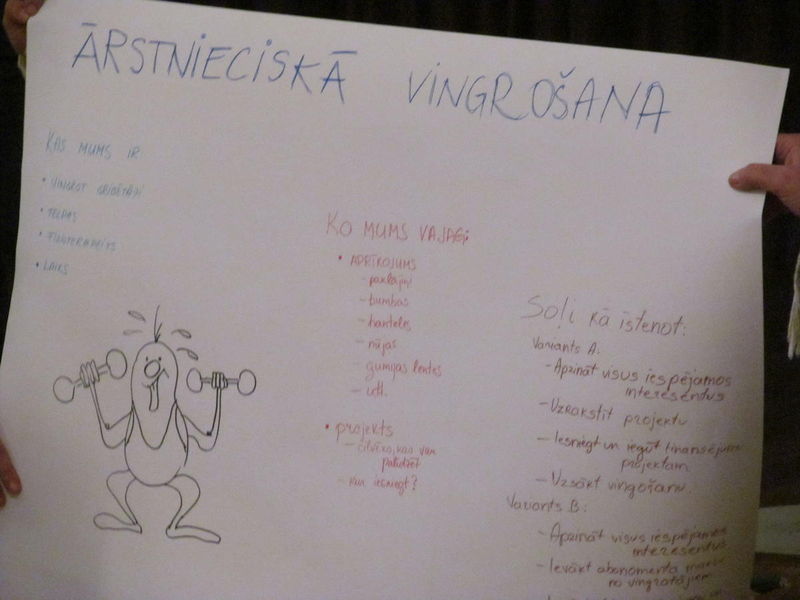 ĀRSTNIECISKĀ VINGROŠANA
KAS MUMS IR
• VINGROT GRIBĒTĀJI
• TELPAS
• FIZIOTERAPEITS
• LAIKS
KO MUMS VAJAG:
• APRĪKOJUMS
– paklājiņi
– bumbas
– hanteles
– nūjas
– gumijas lentes
– utt.
• projekts
– cilvēks, kas var
palīdzēt
– kur iesniegt?
Soļi kā īstenot:
Variants A:
– Apzināt visus iespējamos
interesentus
– Uzrakstīt projektu
– Iesniegt un iegūt finansējumu
projektam
– Uzsākt vingošanu.
Variants B:
– Apzināt visus iespējamos
interesentus
– Ievākt abonomenta
no vingrotājiem